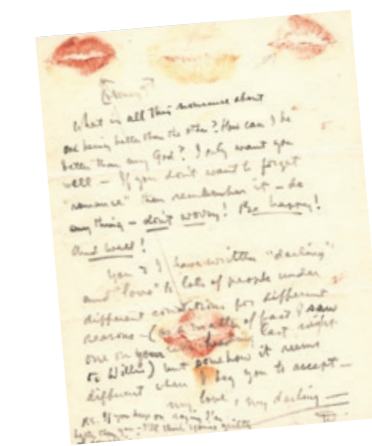 What is all this nonsense about
one being better than the other? How can I be
better than any God? I only want you
well – If you don't want to forget
"romance" then remember it – do
anything – don't worry! Be happy!
And well!
You & I have written "darling"
and "love" to lots of people under
different conditions for different
reasons – (as a matter of fact I saw
one on your last night
to Willie) but somehow it seems
different when I beg you to accept –
my love, my darling –
P.S. If you keep on saying I'm
than you – I'll think you're guilty